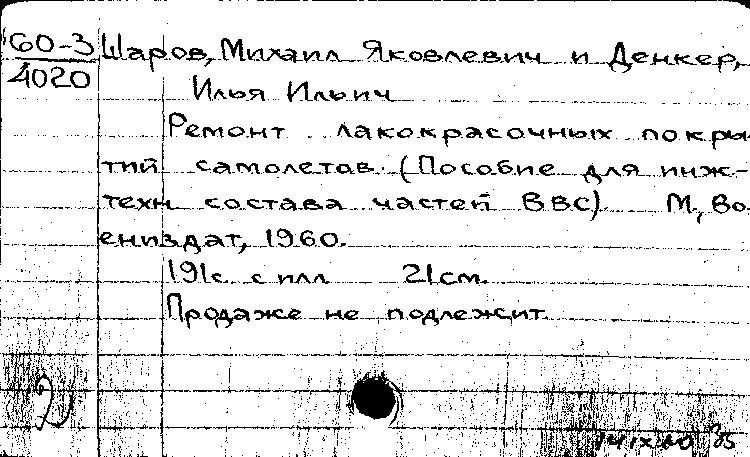 60-3 Шаров, Михаил Яковлевич и Денкер,
4020 Илья Ильич
Ремонт лакокрасочных покры
тий самолетов. (Пособие для инж-
техн состава частей ВВС) М., Во
ениздат, 1960.
191с. с илл 21см.
Продаже не подлежит